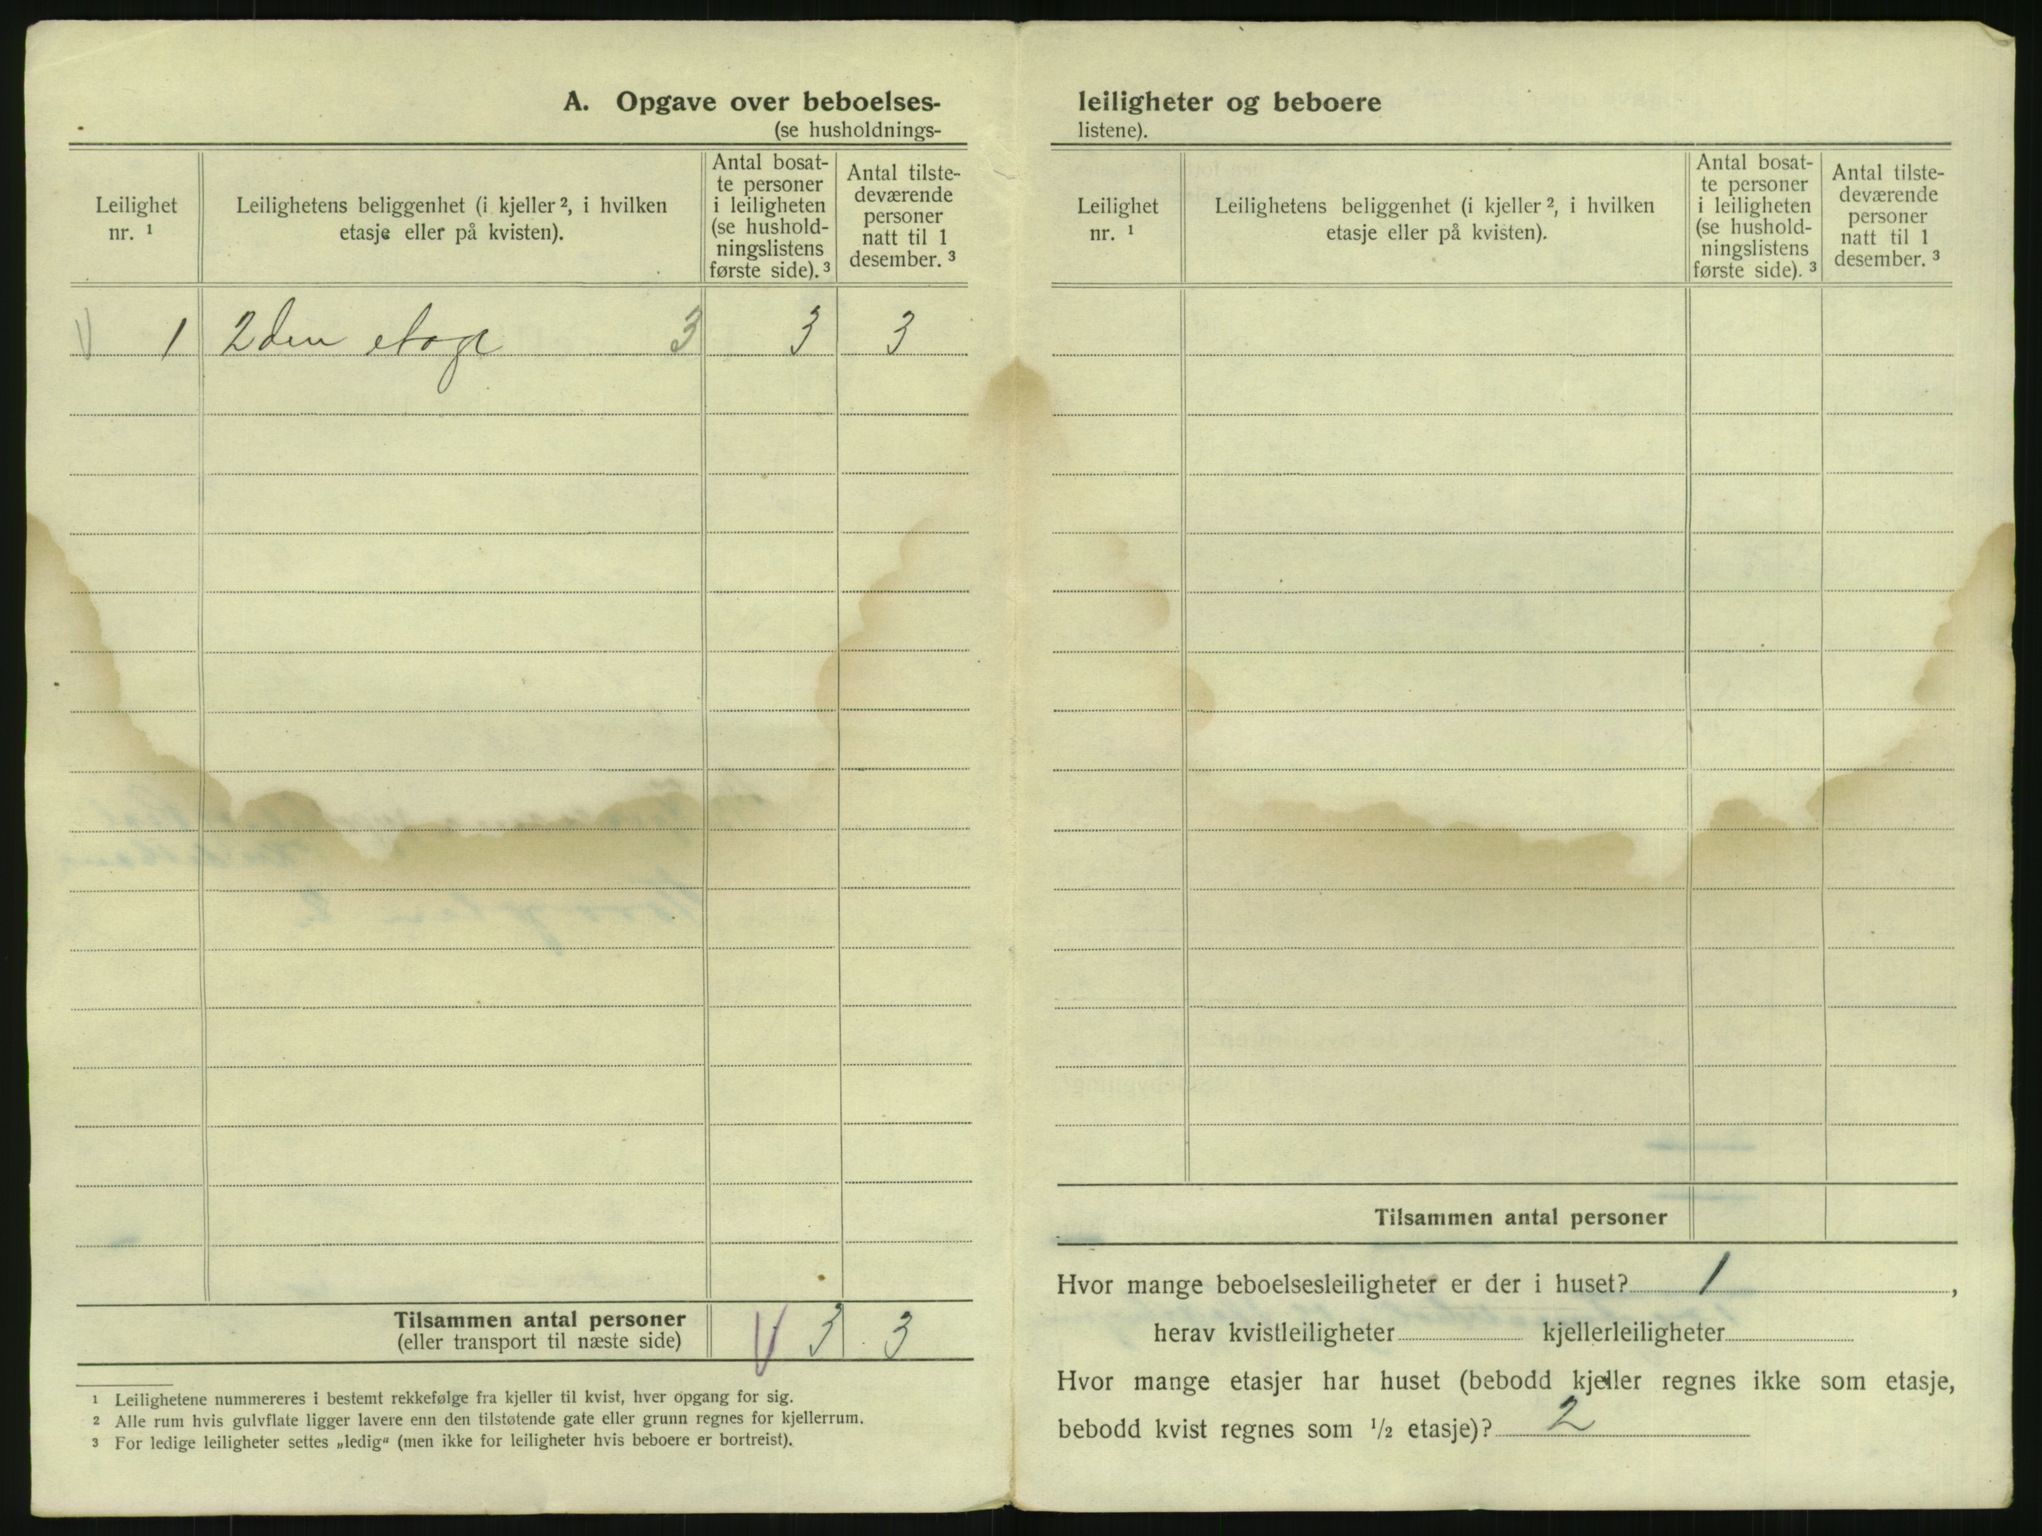 A. Opgave over beboelses-
(se husholdnings-
Leilighet nr. ¹
Leilighetens beliggenhet (i kjeller ², i hvilken etasje eller på kvisten).
Antal bosat-
te personer
i leiligheten
(se hushold-
ningslistens
første side). ³
Antal tilste-
deværende
personer
natt til 1
desember. ³
1 2den etage 3 3 3
Tilsammen antal personer
(eller transport til næste side)
V 3 3
¹ Leilighetene nummereres i bestemt rekkefølge fra kjeller til kvist, hver opgang for sig.
² Alle rum hvis gulvflate ligger lavere enn den tilstøtende gate eller grunn regnes for kjellerrum.
³ For ledige leiligheter settes „ledig“ (men ikke for leiligheter hvis beboere er bortreist).
leiligheter og beboere
listene).
Leilighet nr. ¹
Leilighetens beliggenhet (i kjeller ², i hvilken etasje eller på kvisten).
Antal bosat-
te personer
i leiligheten
(se hushold-
ningslistens
første side). ³
Antal tilste-
deværende
personer
natt til 1
desember. ³
Tilsammen antal personer
Hvor mange beboelsesleiligheter er der i huset? 1 ,
herav kvistleiligheter kjellerleiligheter
Hvor mange etasjer har huset (bebodd kjeller regnes ikke som etasje,
bebodd kvist regnes som ½ etasje)? 2